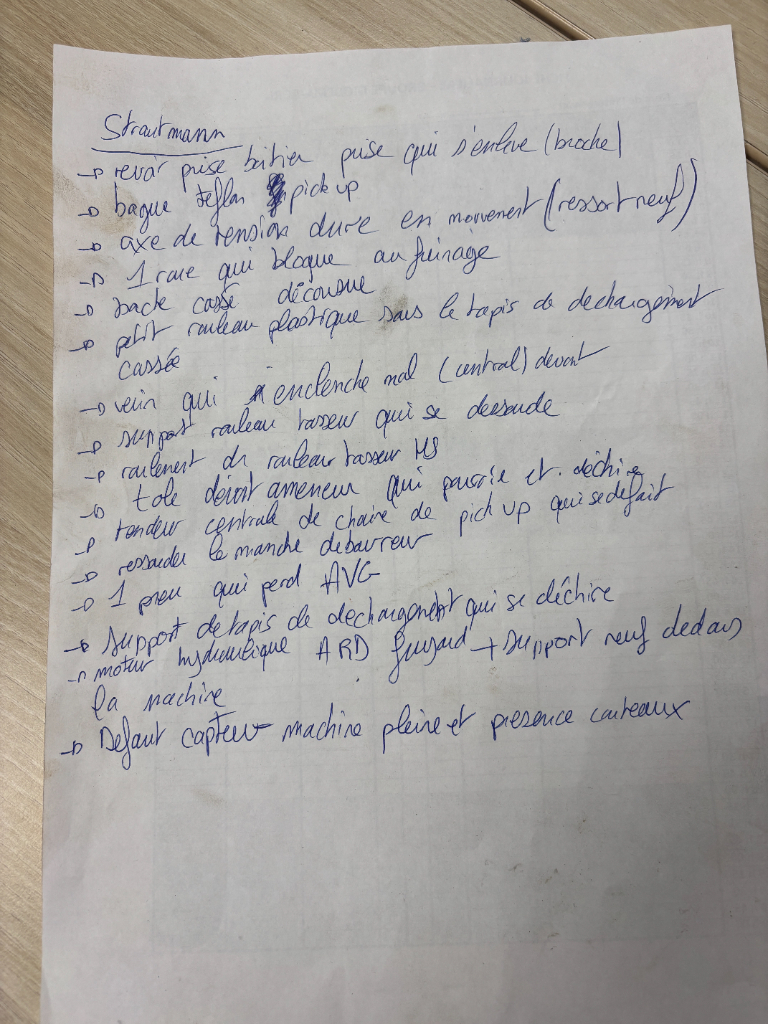 Strautmann
→ revoir prise boitier prise qui s'enlève (broche)
→ bague teflon pick up
→ axe de tension dure en mouvement (ressort neuf)
→ 1 roue qui bloque au freinage
→ bache cassé décousue
→ petit rouleau plastique sous le tapis de dechargement
cassée
→ verin qui enclenche mal (central) devant
→ support rouleau tasseur qui se dessoude
→ roulement du rouleau tasseur HS
→ tole devant ameneur qui pourrie et déchire
→ tendeur centrale de chaine de pick up qui se defait
→ ressouder le manche debavreur
→ 1 pneu qui perd AVG
→ support de tapis de dechargement qui se déchire
→ moteur hydraulique ARD + support neuf dedans
la machine
→ Defaut capteur machine pleine et presence couteaux